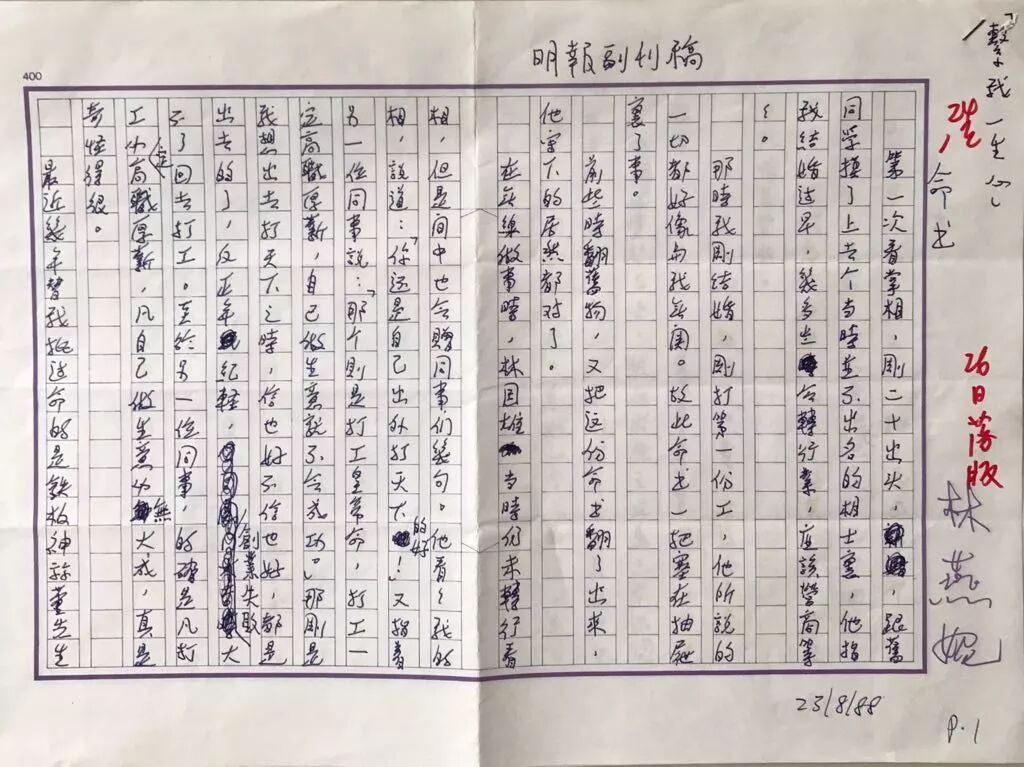 明報副刊稿
400
「繫我一生心」
命书
26日落版
林燕妮
第一次看掌相,剛二十出头,跟舊
同学摸了上去个当時並不出名的相士裏,他指
我結婚过早,幾多些会轉行業,應該營商等
々。
那時我剛結婚,剛打第一份工,他所說的
一切都好像与我無関。故此命书一把塞在抽屜
裏了事。
前些時翻舊物,又把这份命书翻了出來,
他寫下的居然都对了。
在無線做事時,林国雄当時仍未轉行看
相,但是间中也会贈同事们幾句。他看々我的
相,說道:「你还是自己出外打天下的好!」又指着
另一位同事說:「那个則是打工皇帝命,打工一
定高職厚薪,自己做生意就不会成功」。那剛是
我想出去打天下之時,信也好不信也好,都是
出去的了,反正年紀輕,創業失敗大
不了回去打工。至於另一位同事,的確是凡打
工必定高職厚薪,凡自己做生意必無大成,真是
奇怪得很。
最近幾年替我批过命的是鉄板神董先生
23/8/88
P.1